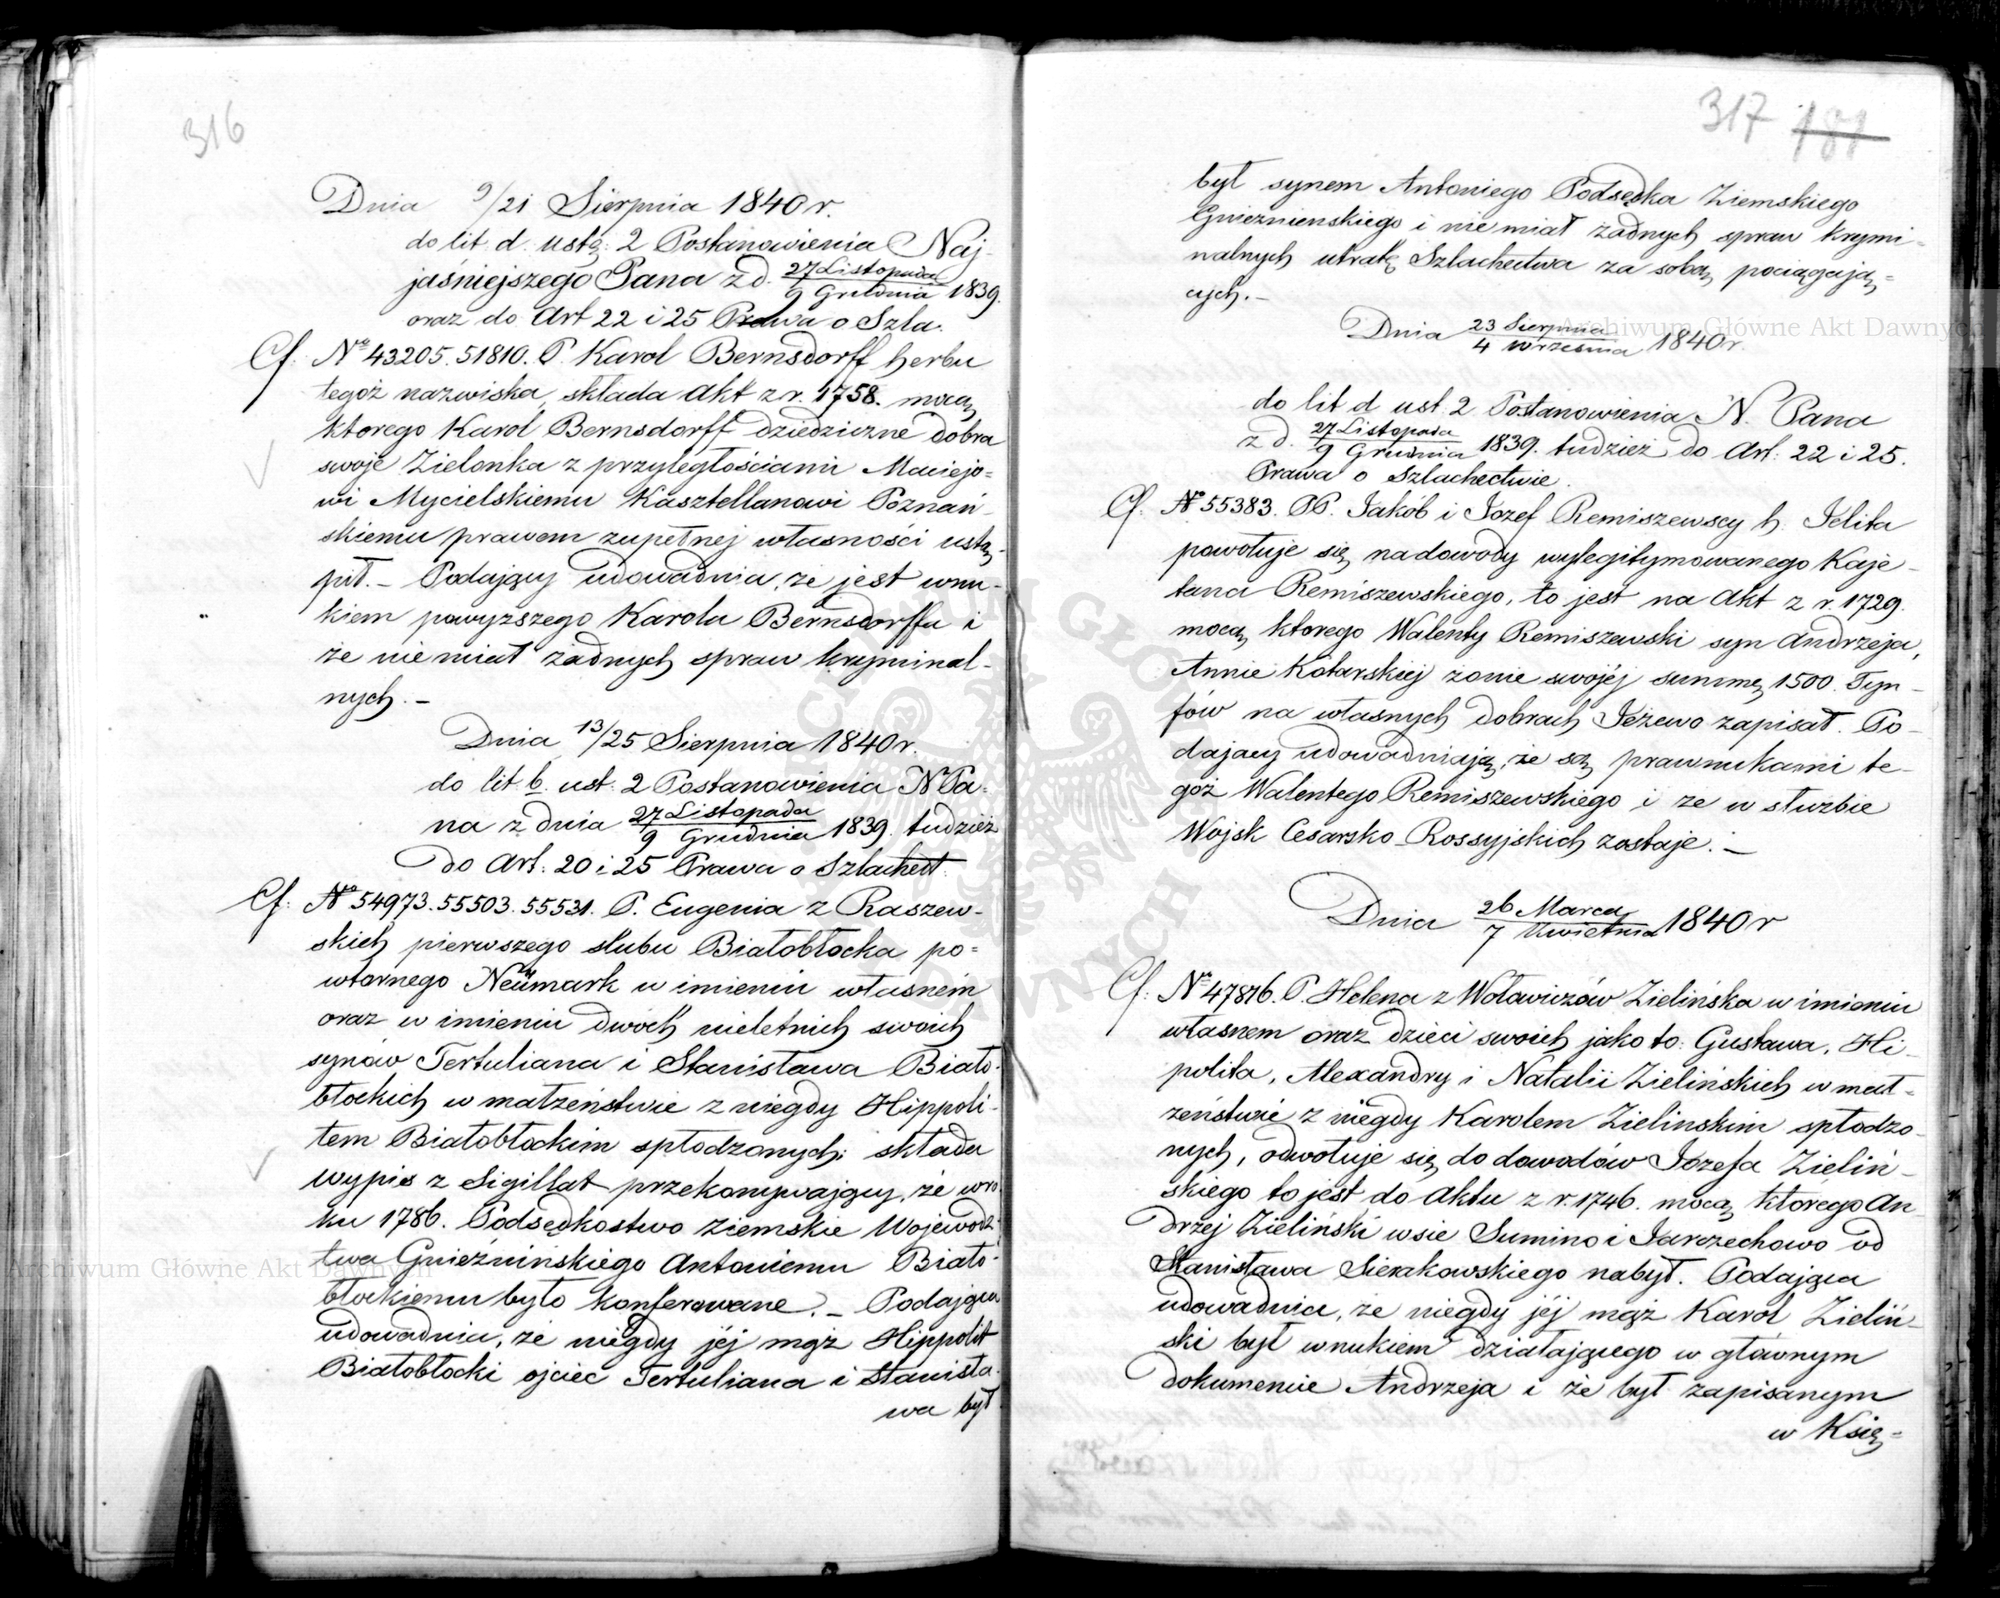 316
Dnia 9/21 Sierpnia 1840 r.
do lit. d. ustę: 2 Postanowienia Naj-
jaśniejszego Pana z d. 27 Listopada/9 Grudnia 1839.
oraz do Art 22 i 25 Prawa o Szla.
Cf. No 43205. 51810. P. Karol Bernsdorff herbu
tegoż nazwiska, składa Akt z r. 1758. mocą
ktorego Karol Bernsdorff dziedziczne dobra
swoje Zielonka z przyległościami Maciejo-
wi Mycielskiemu Kasztellanowi Poznań-
skiemu prawem zupełnej własności ustą-
pił. – Podający udowadnia, że jest wnu-
kiem powyższego Karola Bernsdorffa i
że nie miał żadnych spraw kryminal-
nych. –
Dnia 13/25 Sierpnia 1840 r.
do lit. b. ust: 2 Postanowienia N. Pa-
na z dnia 27 Listopada/9 Grudnia 1839. tudzież
do Art: 20 i 25 Prawa o Szlachect.
Cf: No 54973. 55503. 55531. P. Eugenia z Raszew-
skich pierwszego slubu Białobłocka po=
wtornego Neümark w imieniu własnem
oraz w imieniu dwóch nieletnich swoich
synów Tertuliana i Stanisława Biało-
błockich w małżeństwie z niegdy Hippoli-
tem Białobłockim spłodzonych; składa
wypis z Sigillat przekonywający, że w ro-
ku 1786. Podsędkostwo ziemskie Wojewódz-
twa Gnieźnińskiego Antoniemu Biało-
błockiemu było konferowane. – Podająca
udowadnia, że niegdy jéj mąż Hippolit
Białobłocki ojciec Tertuliana i Stanisła-
wa był
317 181
był synem Antoniego Podsędka Ziemskiego
Gnieznienskiego i nie miał żadnych spraw krymi=
nalnych utratę Szlachectwa za sobą pociągają=
cych. –
Dnia 23 Sierpnia/4 Września 1840 r.
do lit d ust. 2 Postanowienia N. Pana
z d. 27 Listopada/9 Grudnia 1839. tudzież do Art: 22 i 25.
Prawa o Szlachectwie.
Cf. No 55383. PP. Jakób i Józef Remiszewscy h. Jelita
powołuje się na dowody wylegitymowanego Kaje-
tana Remiszewskiego, to jest na Akt z r. 1729.
mocą ktorego Walenty Remiszewski syn Andrzeja,
Annie Kotarskiej żonie swojéj summę 1500. Tyn-
fów na własnych dobrach Jeżewo zapisał. Po-
dający udowadniają, że są prawnukami te-
goż Walentego Remiszewskiego i że w służbie
Wojsk Cesarsko-Rossyjskich zostaje. –
Dnia 26 Marca/7 Kwietnia 1840 r
Cf: No 47816. P. Helena z Wołowiczów Zielińska w imieniu
własnem oraz dzieci swoich jako to: Gustawa, Hi-
polita, Alexandry i Natalii Zielińskich w mał-
żeństwie z niegdy Karolem Zielinskim spłodzo-
nych, odwołuje się do dowodów Józefa Zieliń-
skiego to jest do Aktu z r. 1746. mocą ktorego An-
drzej Zieliński wsie Sumino i Jarzechowo od
Stanisława Sierakowskiego nabył. Podająca
udowadnia, że niegdy jéj mąż Karol Zieliń-
ski był wnukiem działającego w głównym
dokumencie Andrzeja i że był zapisanym
w Księ=
Archiwum Główne Akt Dawnych
Archiwum Główne Akt Dawnych
ARCHIWUM GŁÓWNE AKT DAWNYCH